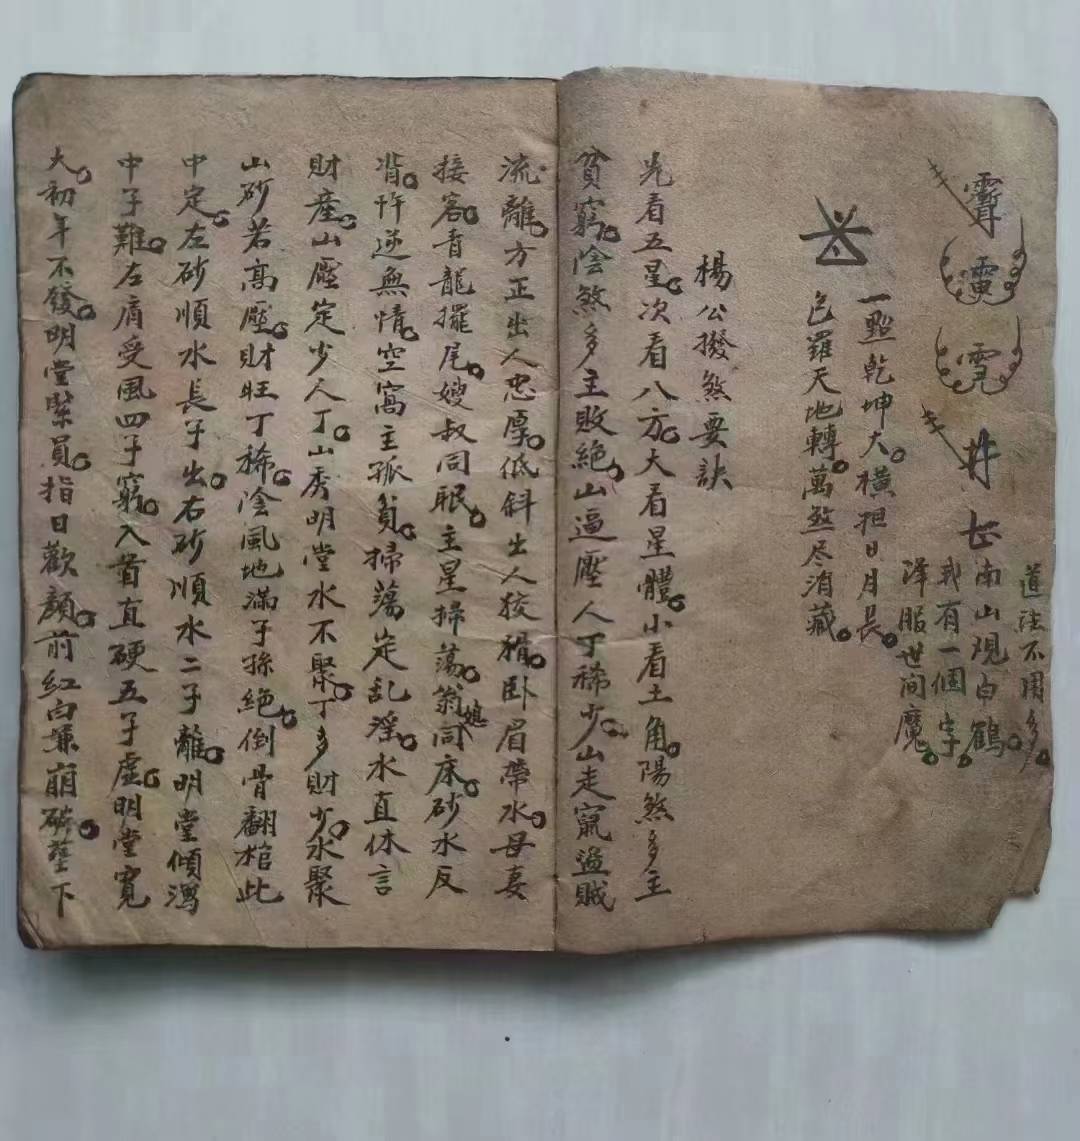 道法不用多
南山观白鶴
我有一個字
降服世间魔
一點乾坤大横担日月長
包羅天地轉萬煞尽消藏
楊公撥煞要訣
先看五星次看八方大看星體小看土角陽煞多主
貧窮陰煞多主敗絶山逼壓人丁稀少山走竄盗賊
流離方正出人忠厚低斜出人狡猾卧眉帶水母妻
接客青龍擺尾嫂叔同眠主星掃蕩翁媳同床砂水反
背忤逆無情空窩主孤貧掃蕩定乱滛水直休言
財産山壓定少人丁山秀明堂水不聚丁多財少水聚
山砂若高壓財旺丁稀陰風地滿子孫絶倒骨翻棺此
中定左砂順水長子出右砂順水二子離明堂傾瀉
中子難左肩受風四子窮入首直硬五子虚明堂寬
大初年不發明堂緊員指日歡顔前紅白嫌崩破塋下